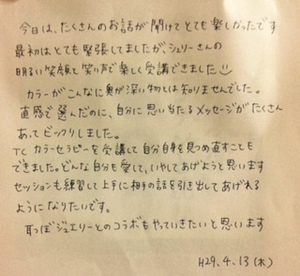 今日は、たくさんのお話が聞けてとても楽しかったです
最初はとても緊張してましたが、シュリーさんの
明るい笑顔と笑い声で楽しく受講できました
カラーがこんなに奥が深い物とは知りませんでした。
直感で選んだのに、自分に思い当たるメッセージがたくさん
あってビックリしました。
TCカラーセラピーを受講して自分自身を見つめ直すことも
できました。どんな自分も愛して、いやしてあげようと思います
セッションも練習して上手に相手の話を引き出してあげれる
ようになりたいです。
耳つぼジュエリーとのコラボもやっていきたいと思います
H29.4.13(木)